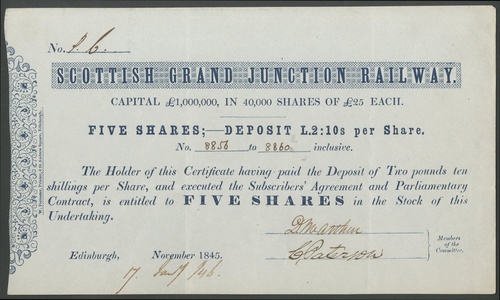 No.
SCOTTISH GRAND JUNCTION RAILWAY.
CAPITAL £1,000,000, IN 40,000 SHARES OF £25 EACH.
FIVE SHARES;—DEPOSIT L.2:10s per Share.
No. 8856 to 8860 inclusive.
The Holder of this Certificate having paid the Deposit of Two pounds ten
shillings per Share, and executed the Subscribers' Agreement and Parliamentary
Contract, is entitled to FIVE SHARES in the Stock of this
Undertaking.
C. Paterson
Members
of the
Committee.
Edinburgh, November 1845.
17